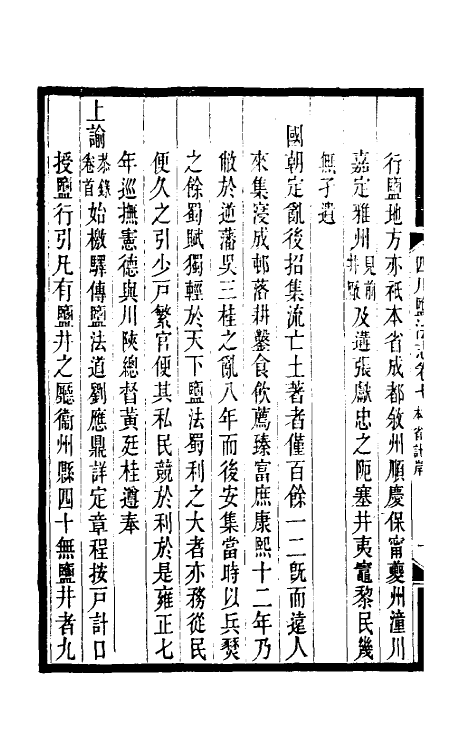 四川鹽法志卷七 本省計岸 一
行鹽地方亦祇本省成都敘州順慶保甯夔州潼川
嘉定雅州見前井廠及遘張獻忠之阨塞井夷竈黎民幾
無孑遺
國朝定亂後招集流亡土著者僅百餘一二旣而遠人
來集寖成邨落耕鑿食飲薦臻富庶康熙十二年乃
敝於逆藩吳三桂之亂八年而後安集當時以兵燹
之餘蜀賦獨輕於天下鹽法蜀利之大者亦務從民
便久之引少戸繁官便其私民競於利於是雍正七
年巡撫憲德與川陝總督黃廷桂遵奉
上諭恭錄卷首始檄驛傳鹽法道劉應鼎詳定章程按戸計口
授鹽行引凡有鹽井之廳衞州縣四十無鹽井者九